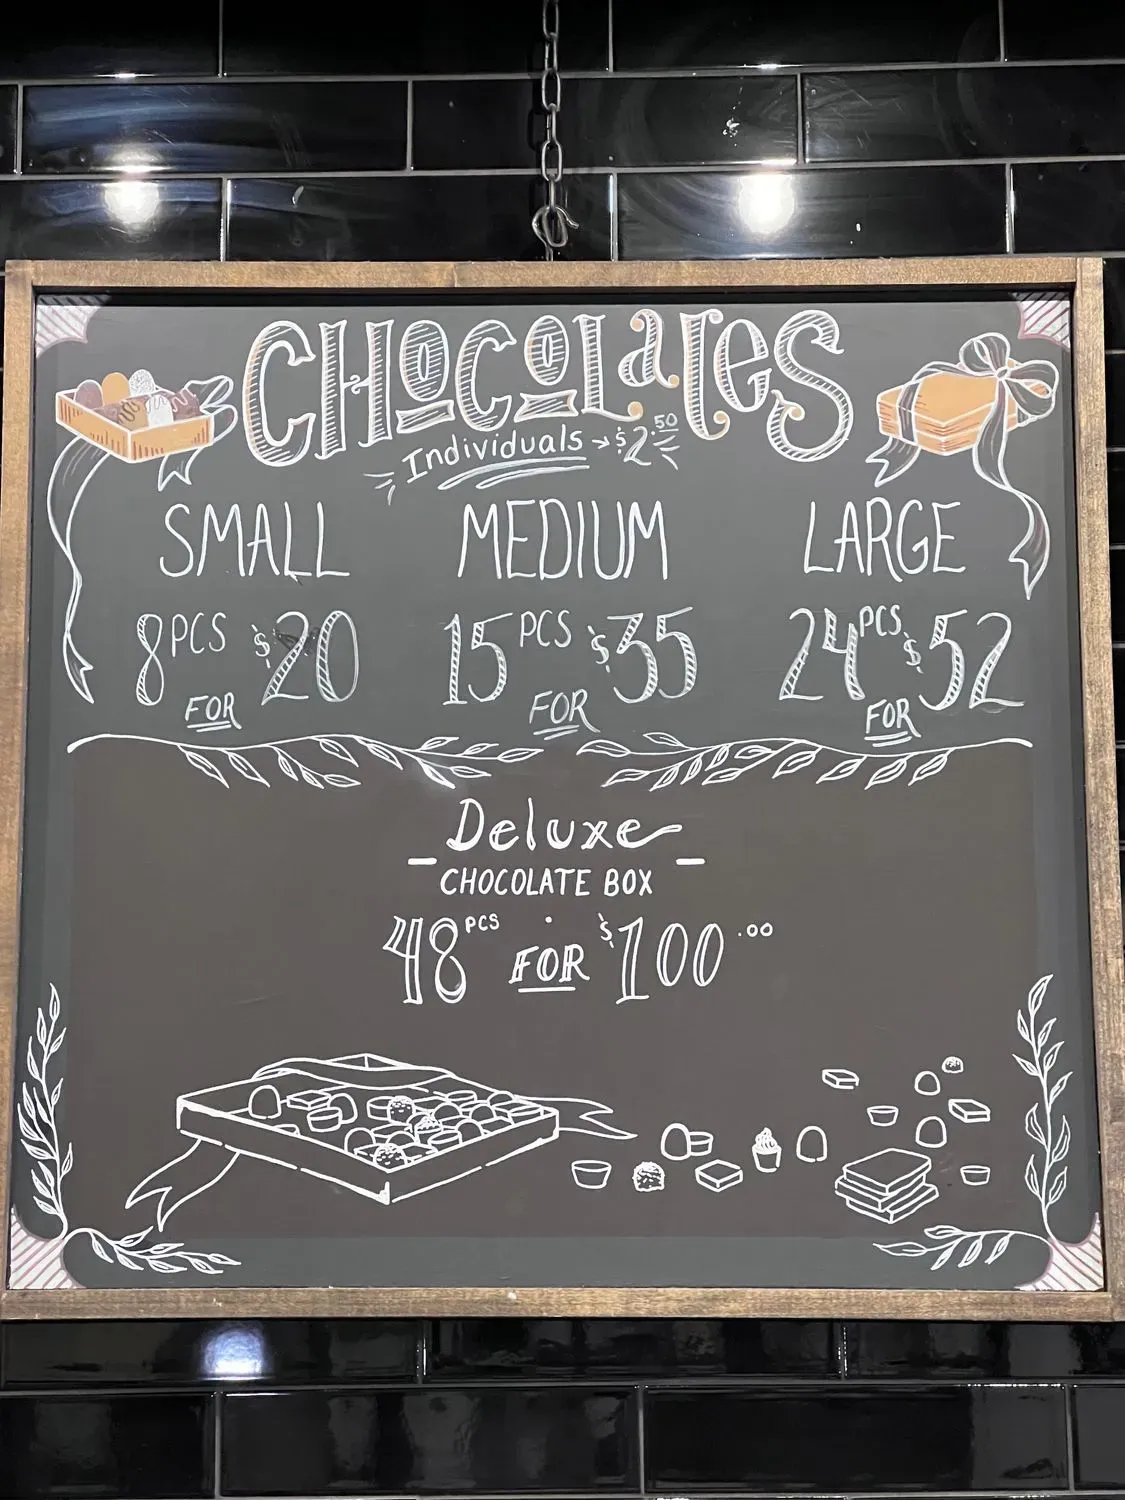 CHOCOLATES
Individuals → $2.50
SMALL MEDIUM LARGE
8 PCS FOR $20 15 PCS FOR $35 24 PCS FOR $52
Deluxe
CHOCOLATE BOX
48 PCS FOR $100.00